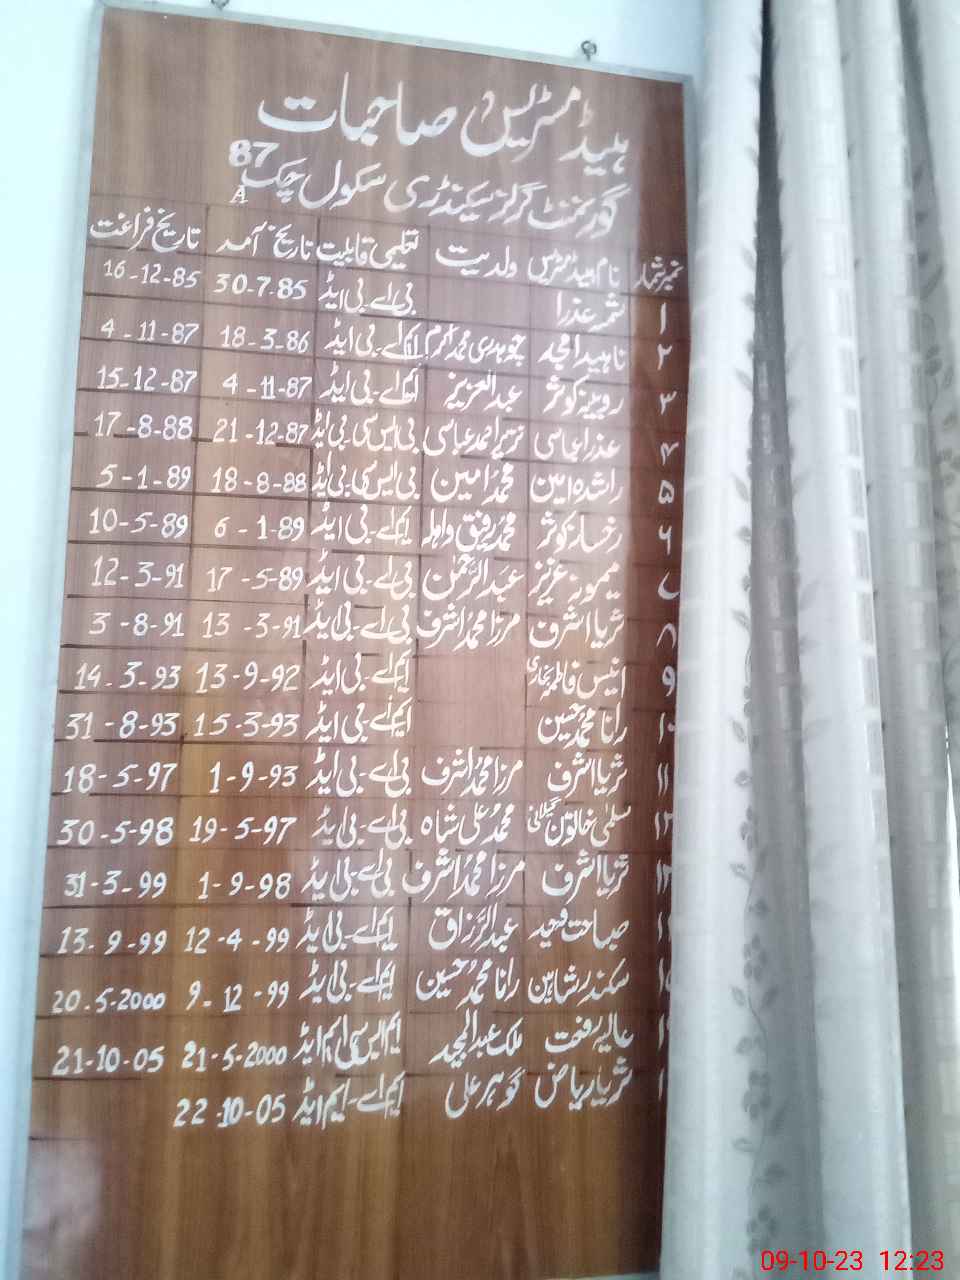 ہیڈ مسٹریس صاحبات
گورنمنٹ گرلز سیکنڈری سکول چک 87 A
نمبر شمار نام ہیڈ مسٹریس ولدیت تعلیمی قابلیت تاریخ آمد تاریخ فراغت
۱ شمہ عذرا بی اے بی ایڈ 30-7-85 16-12-85
۲ ناہید امجد چوہدری محمد اکرم ایم اے بی ایڈ 18-3-86 4-11-87
۳ روبینہ کوثر عبدالعزیز ایم اے بی ایڈ 4-11-87 15-12-87
۴ عذرا عباسی احمد عباسی بی ایس سی بی ایڈ 21-12-87 17-8-88
۵ راشدہ امین محمد امین بی ایس سی بی ایڈ 18-8-88 5-1-89
۶ رخسانہ کوثر محمد رفیق واہلہ ایم اے بی ایڈ 6-1-89 10-5-89
۷ میمونہ عزیز عبدالرحمٰن بی اے بی ایڈ 17-5-89 12-3-91
۸ ثریا اشرف مرزا محمد اشرف بی اے بی ایڈ 13-3-91 3-8-91
۹ انیس فاطمہ بخاری ایم اے بی ایڈ 13-9-92 14-3-93
۱۰ رانا محمد حسین ایم اے بی ایڈ 15-3-93 31-8-93
۱۱ ثریا اشرف مرزا محمد اشرف بی اے بی ایڈ 1-9-93 18-5-97
۱۲ سلمیٰ خاتون گیلانی محمد علی شاہ بی اے بی ایڈ 19-5-97 30-5-98
۱۳ ثریا اشرف مرزا محمد اشرف بی اے بی ایڈ 1-9-98 31-3-99
صباحت فہید عبدالرزاق ایم اے بی ایڈ 12-4-99 13-9-99
سکندر شاہین رانا محمد حسین ایم اے بی ایڈ 9-12-99 20-5-2000
عالیہ رفعت ملک عبدالمجید ایم ایس سی ایم ایڈ 21-5-2000 21-10-05
ثریا ریاض گوہر علی ایم اے ایم ایڈ 22-10-05
09-10-23 12:23